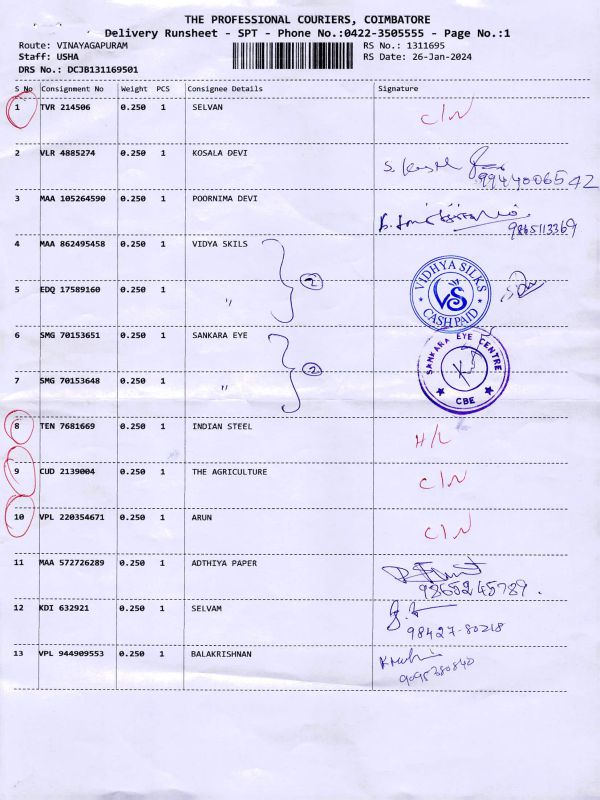 THE PROFESSIONAL COURIERS, COIMBATORE
Delivery Runsheet - SPT - Phone No.:0422-3505555 - Page No.:1
Route: VINAYAGAPURAM RS No.: 1311695
Staff: USHA RS Date: 26-Jan-2024
DRS No.: DCJB131169501
S No Consignment No Weight PCS Consignee Details Signature
1 TVR 214506 0.250 1 SELVAN C/N
2 VLR 4885274 0.250 1 KOSALA DEVI
9944006542
3 MAA 105264590 0.250 1 POORNIMA DEVI
9865113369
4 MAA 862495458 0.250 1 VIDYA SKILS
2
VIDHYA SILKS
VS
CASH PAID
5 EDQ 17589160 0.250 1 "
6 SMG 70153651 0.250 1 SANKARA EYE
2
SANKARA EYE CENTRE
CBE
7 SMG 70153648 0.250 1 "
8 TEN 7681669 0.250 1 INDIAN STEEL H/L
9 CUD 2139004 0.250 1 THE AGRICULTURE C/N
10 VPL 220354671 0.250 1 ARUN C/N
11 MAA 572726289 0.250 1 ADTHIYA PAPER
9865245789.
12 KDI 632921 0.250 1 SELVAM
98427-80218
13 VPL 944909553 0.250 1 BALAKRISHNAN
9095380840